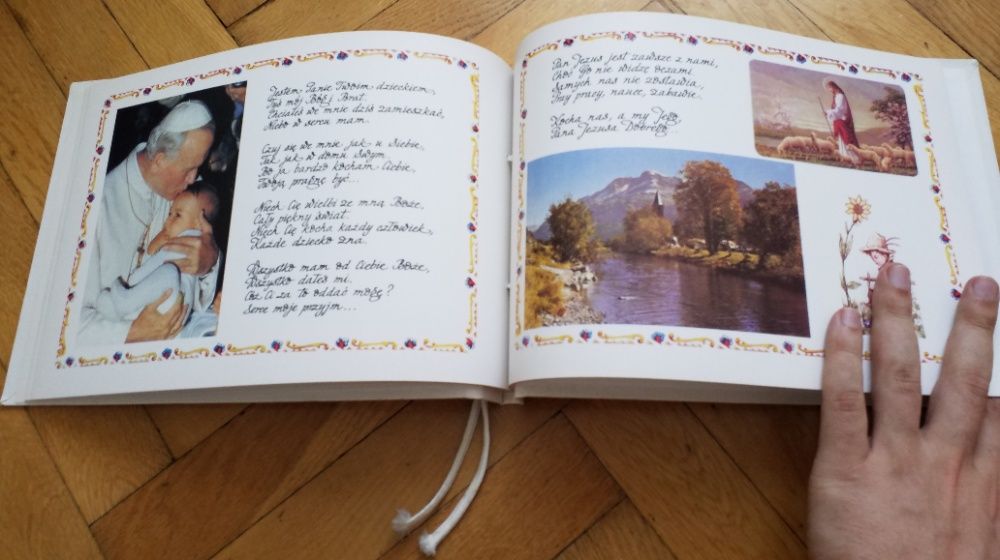 Jestem Panie Twoim dzieckiem,
Tyś mój Bóg i Brat.
Chciałeś we mnie dziś zamieszkać,
Niebo w sercu mam.
Czuj się we mnie jak u siebie,
Tak jak w domu swym.
Bo ja bardzo kocham Ciebie,
Twoją pragnę być...
Niech Cię wielbi ze mną Boże,
Cały piękny świat.
Niech Cię kocha każdy człowiek,
Każde dziecko zna.
Wszystko mam od Ciebie Boże,
Wszystko dałeś mi.
Cóż Ci za to oddać mogę?
Serce moje przyjm...
Pan Jezus jest zawsze z nami,
Choć Go nie widzę oczami.
Samych nas nie zostawia,
Przy pracy, nauce, zabawie.
Kocha nas, a my Jego
Pana Jezusa Dobrego...